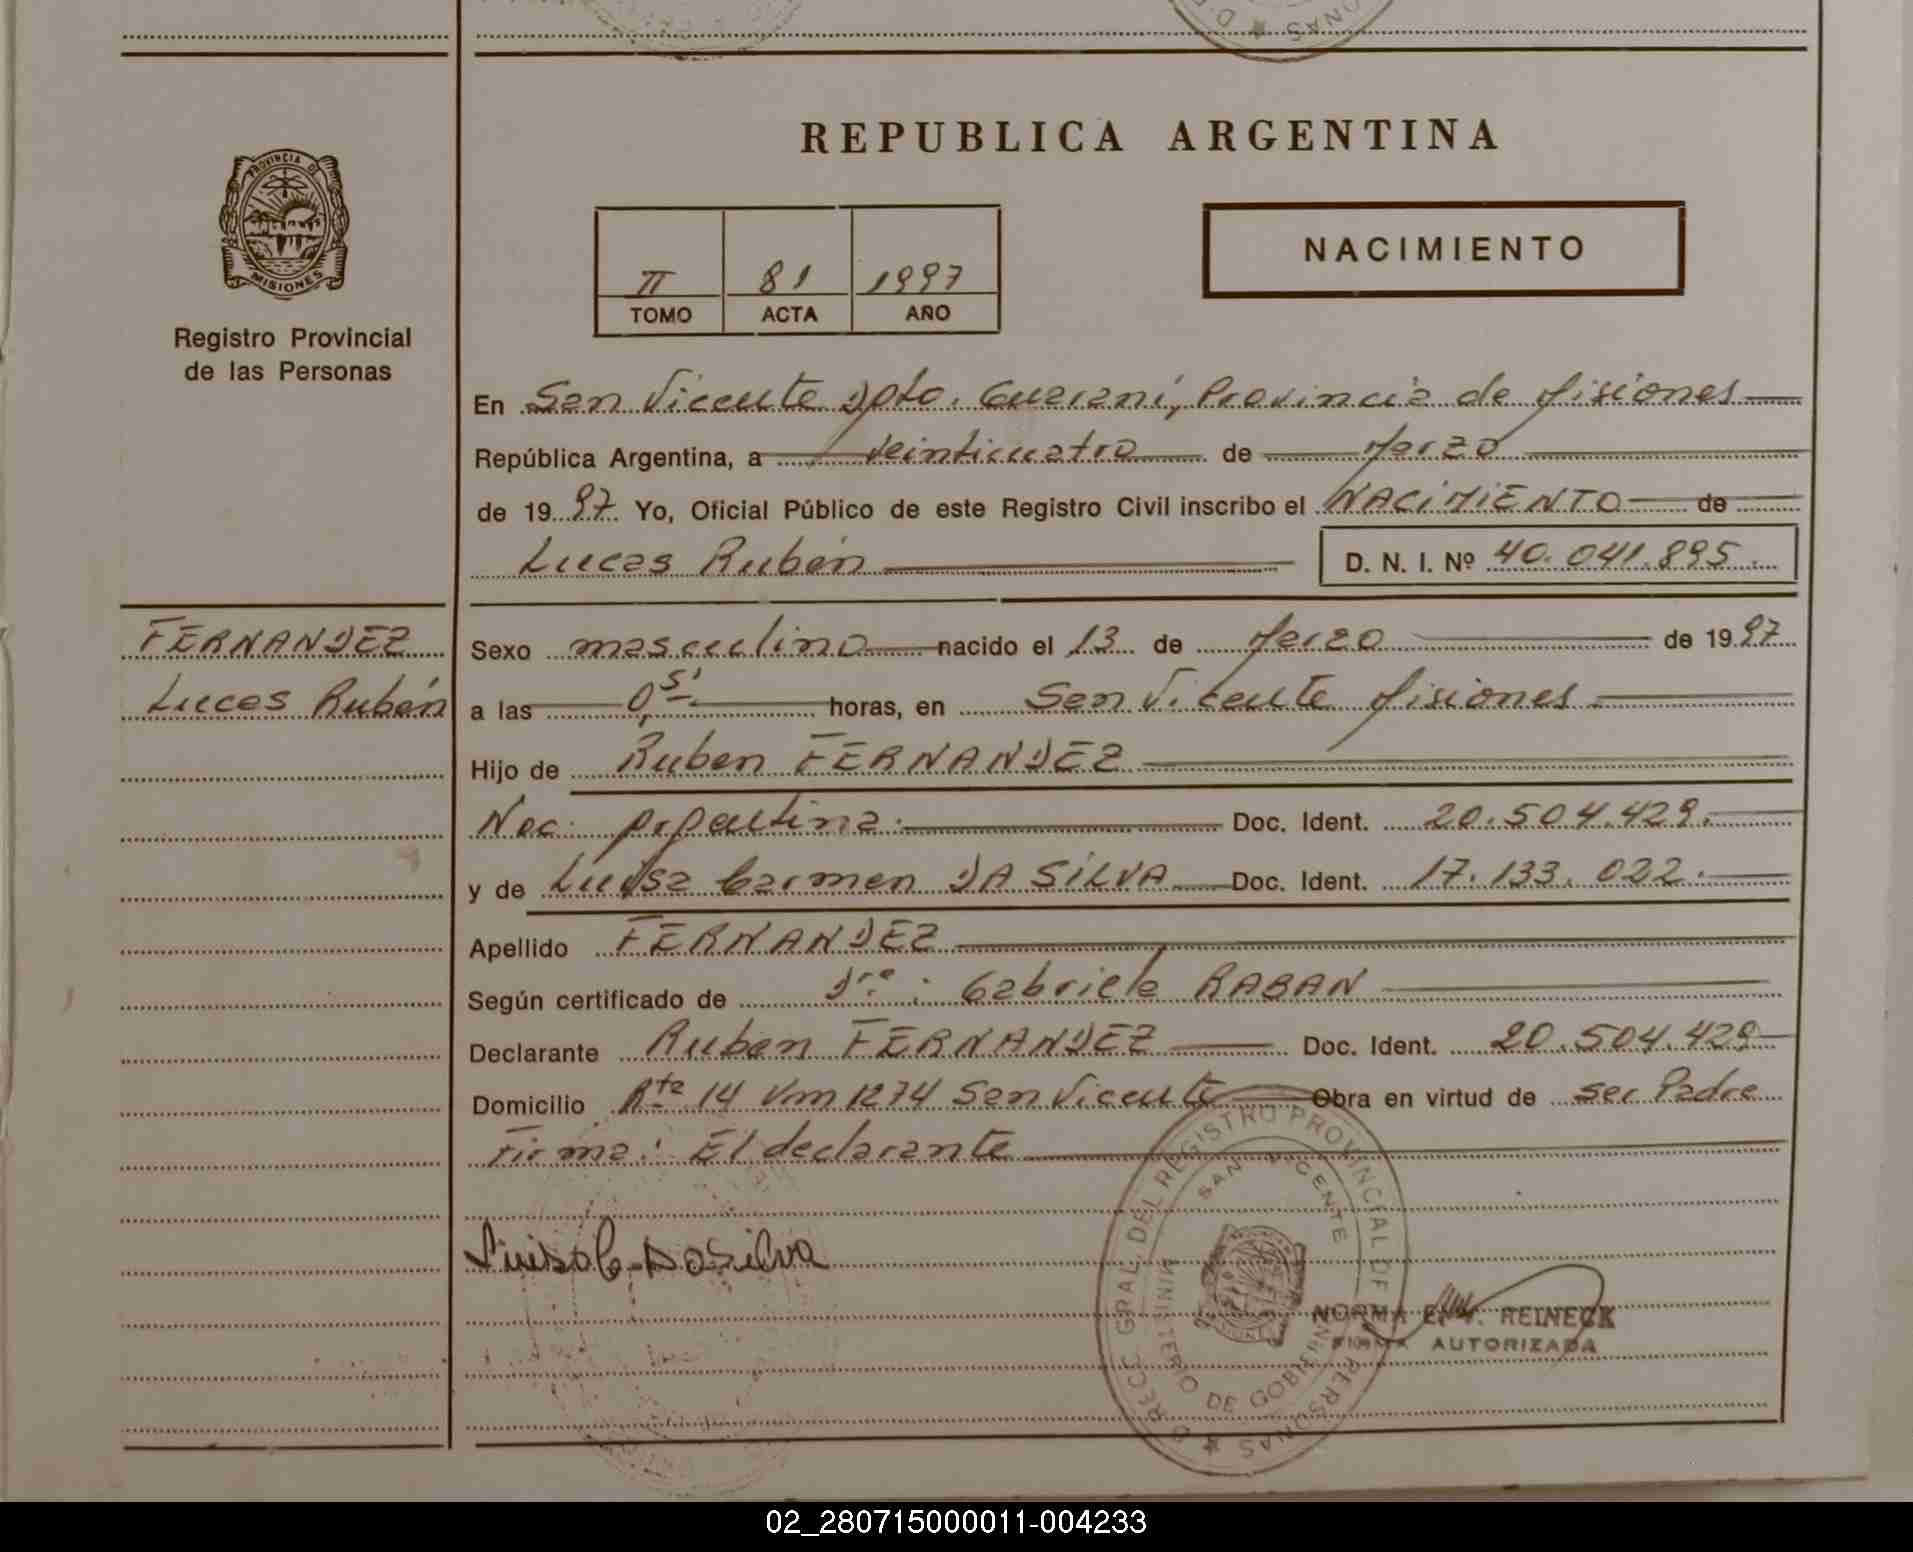 REPUBLICA ARGENTINA
PROVINCIA DE
MISIONES
Registro Provincial
de las Personas
II 81 1997
TOMO ACTA AÑO
NACIMIENTO
En San Vicente Dpto. Guaraní, Provincia de Misiones
República Argentina, a veinticuatro de Marzo
de 1997 Yo, Oficial Público de este Registro Civil inscribo el NACIMIENTO de
Lucas Rubén D. N. I. Nº 40.041.895.
FERNANDEZ
Lucas Rubén
Sexo masculino nacido el 13 de Marzo de 1997
a las 0,5' horas, en San Vicente Misiones
Hijo de Ruben FERNANDEZ
Nac. Argentina. Doc. Ident. 20.504.429.
y de Luisa Carmen DA SILVA Doc. Ident. 17.133.022.
Apellido FERNANDEZ
Según certificado de Dra: Gabriela RABAN
Declarante Ruben FERNANDEZ Doc. Ident. 20.504.429
Domicilio Rta 14 Km 1274 San Vicente Obra en virtud de ser Padre
Firma: El declarante
Luisa C. Da Silva
DIRECC. GRAL. DEL REGISTRO PROVINCIAL DE PERSONAS
SAN VICENTE
MINISTERIO DE GOBIERNO
NORMA E. REINECK
FIRMA AUTORIZADA
02_280715000011-004233